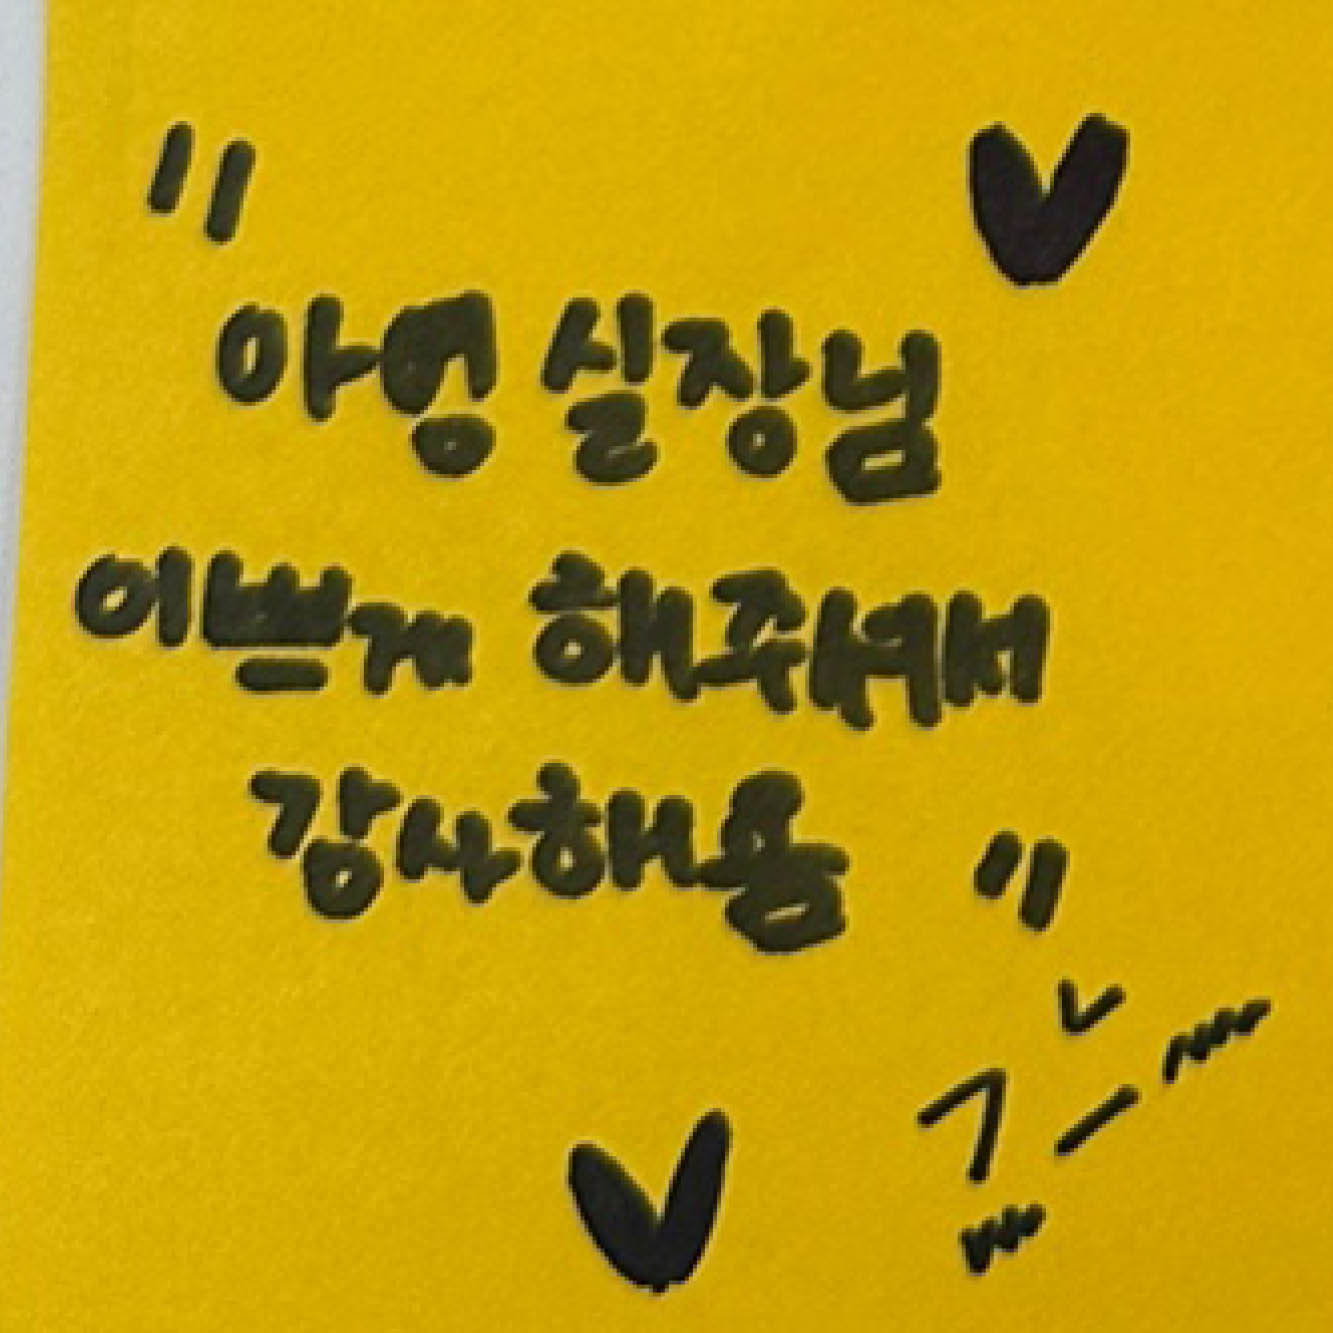 "
아영 실장님
이쁘게 해주셔서
감사해용 "